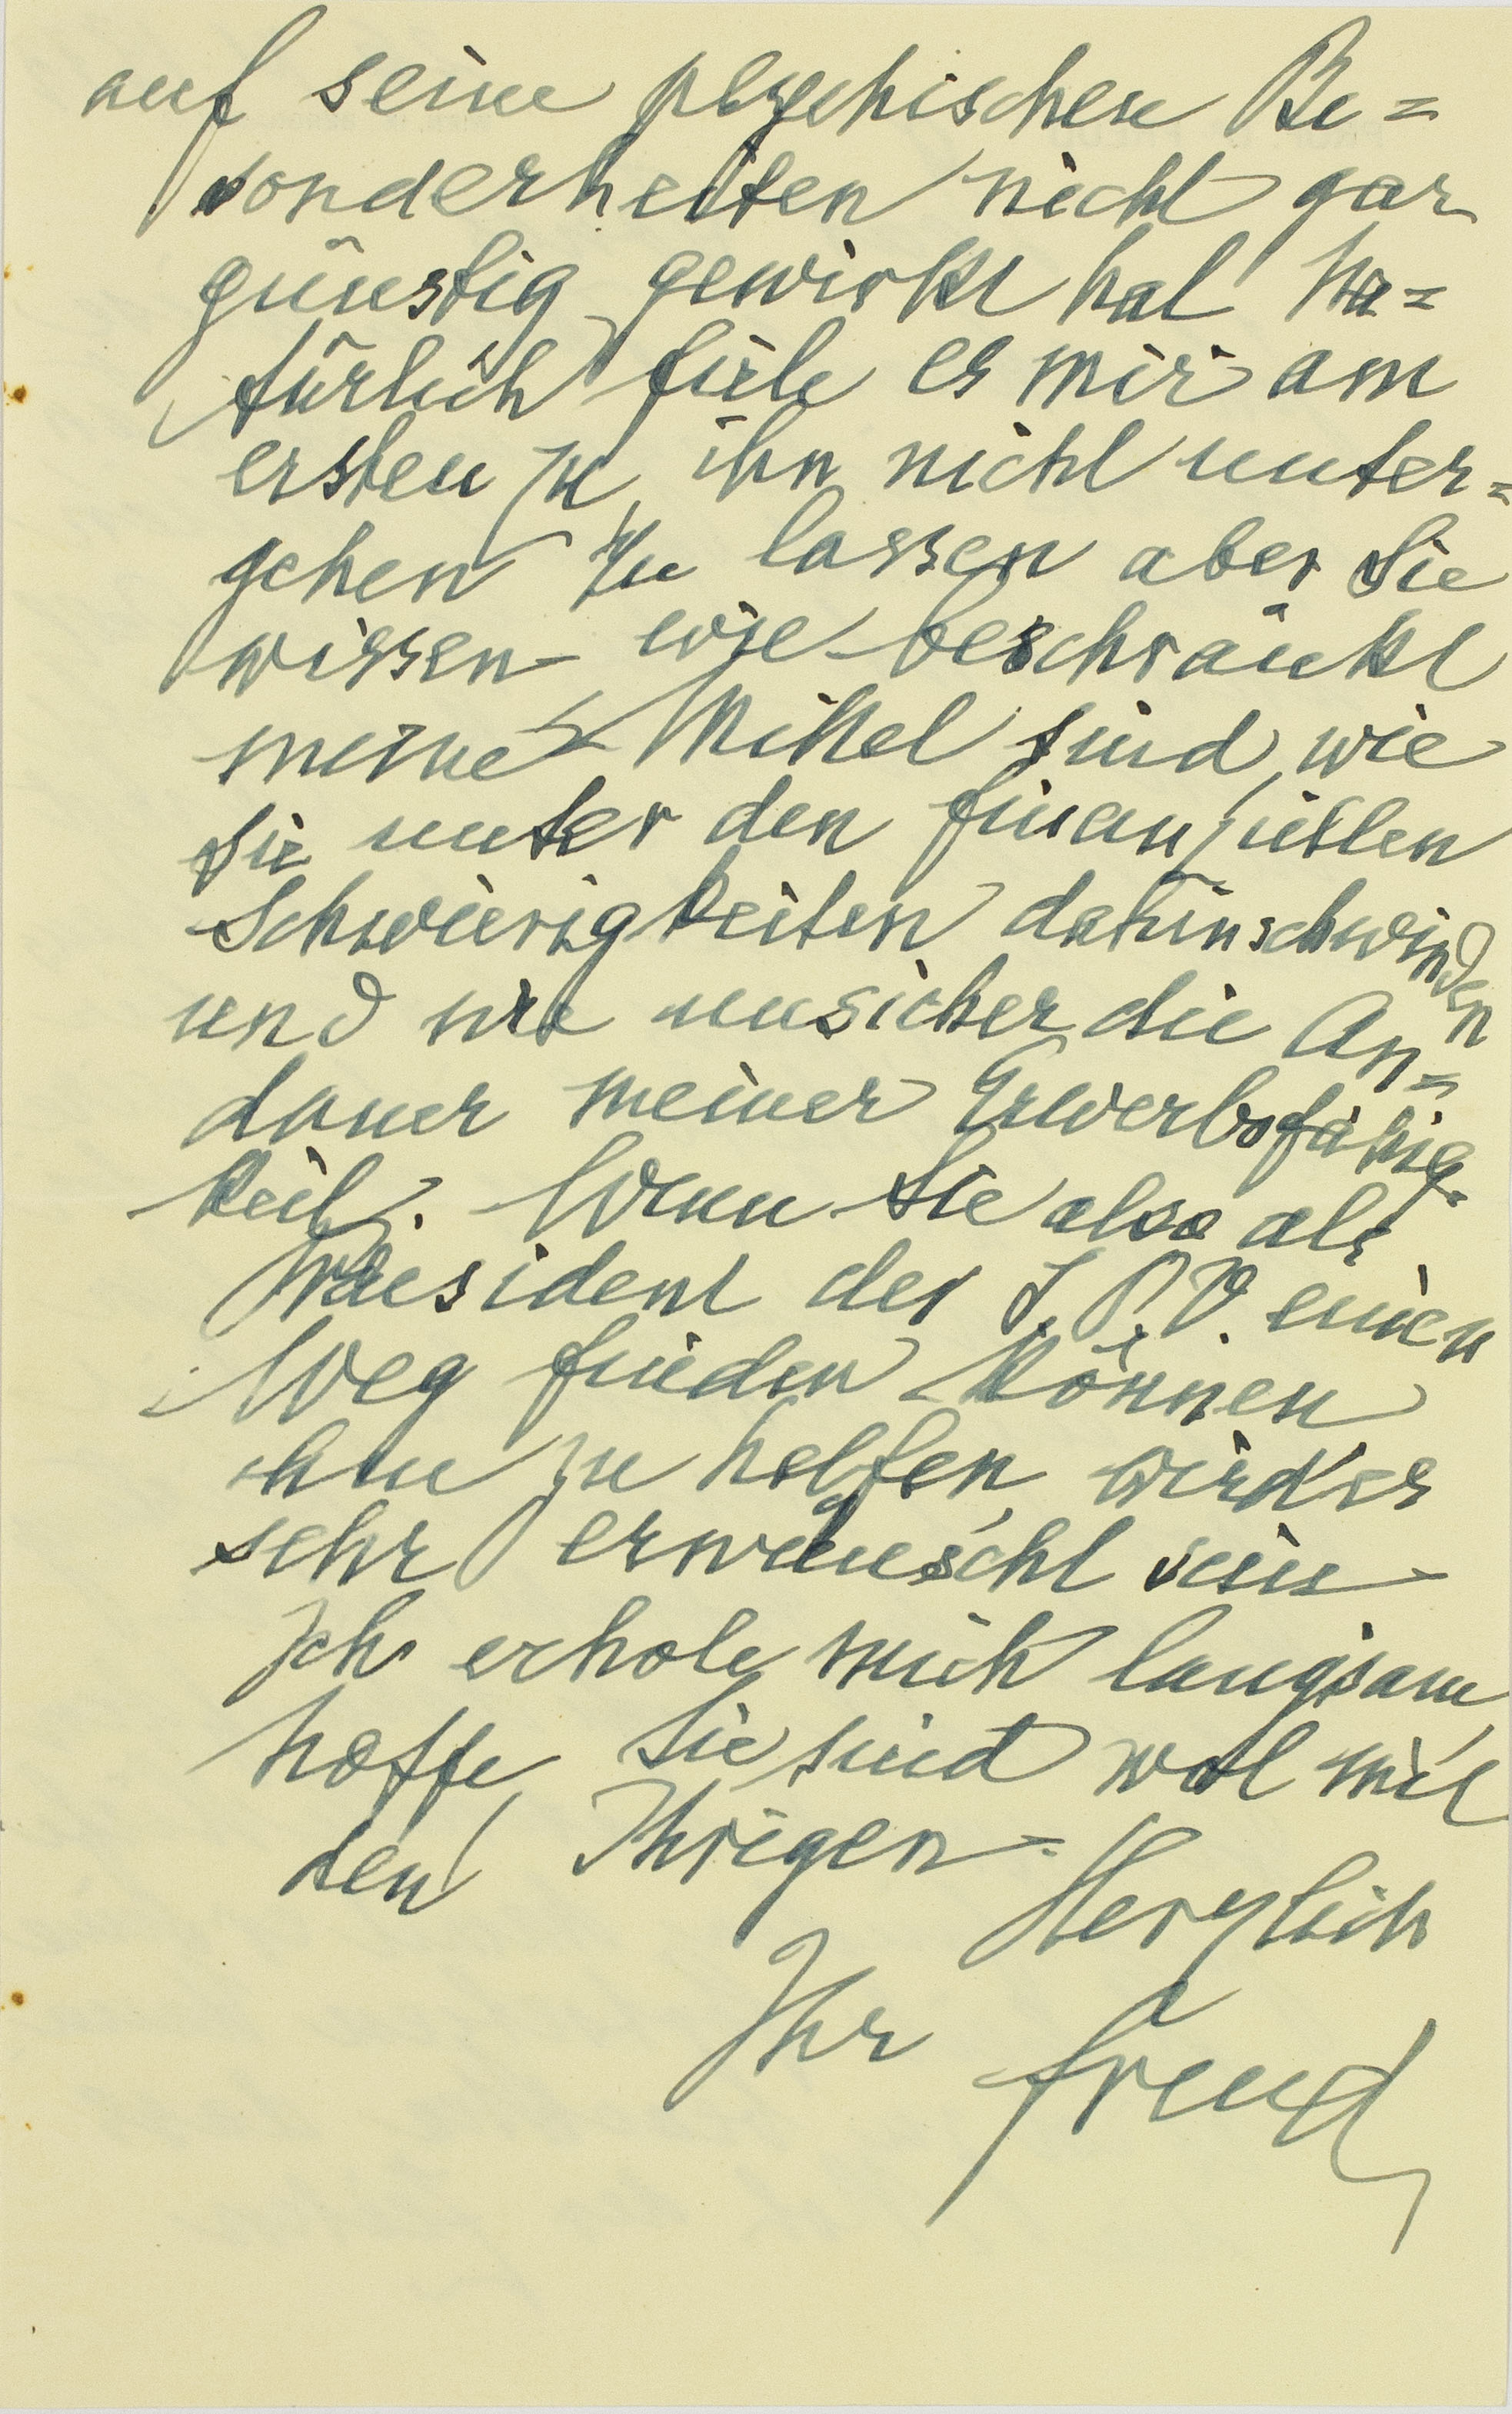 auf seine psychischen Be=
sonderheiten nicht gar
günstig gewirkt hat. Na=
türlich fiele es mir am
ersten zu, ihn nicht unter=
gehen zu lassen aber Sie
wissen wie beschränkt
meine Mittel sind, wie
sie unter den finanziellen
Schwierigkeiten dahinschwinden
und wie unsicher die An=
dauer meiner Erwerbsfähig=
keit ist. Wenn Sie also als
Präsident der I. P. V. einen
Weg finden können
ihm zu helfen, wird es
sehr erwünscht sein
Ich erhole mich langsam,
hoffe, Sie sind wol mit
den Ihrigen.
Herzlich
Ihr Freud